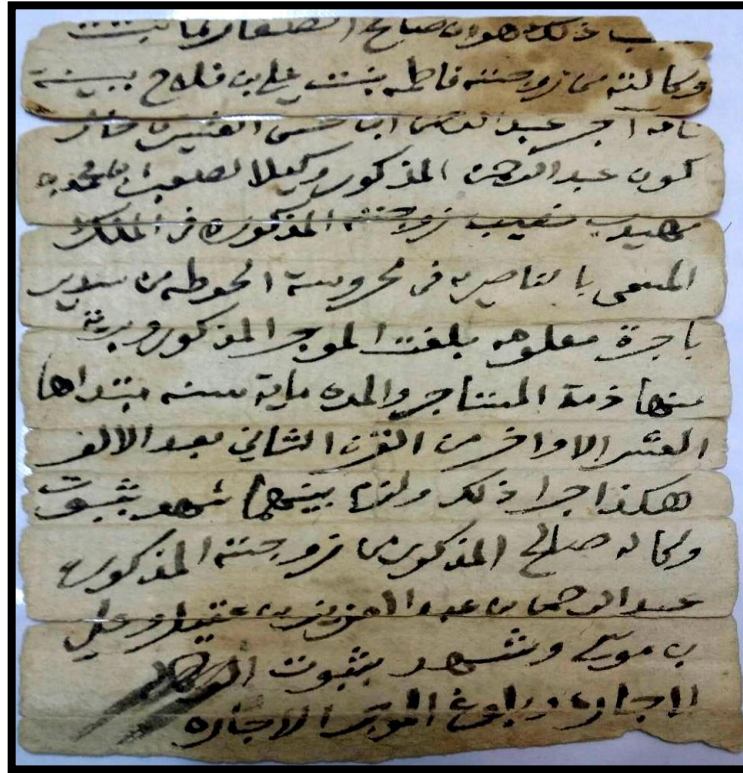 سبب ذلك هو ان صالح الصفار لما ثبت
وكالته من زوجته فاطمه بنت علي بن فلاح ببينة
تامه آجر عبدالرحمن ابن حال
كون عبدالرحمن المذكور وكيلا بن محمد
نصيب زوجته المذكوره في الملك
المسمى بالناصريه في محروسة الحوطه من سدير
باجرة معلومه بلغت الموجر المذكور وبرئة
منها ذمة المستاجر والمده ماية سنه مبتداها
العشر الاواخر من القرن الثاني بعد الالف
هكذا جرا ذلك ولزم بينهما شهد بثبوت
وكالة صالح المذكور من زوجته المذكوره
عبدالرحمن بن عبدالعزيز بن وعلي
بن موسى وشهد بثبوت
الاجاره وبلوغ الاجاره